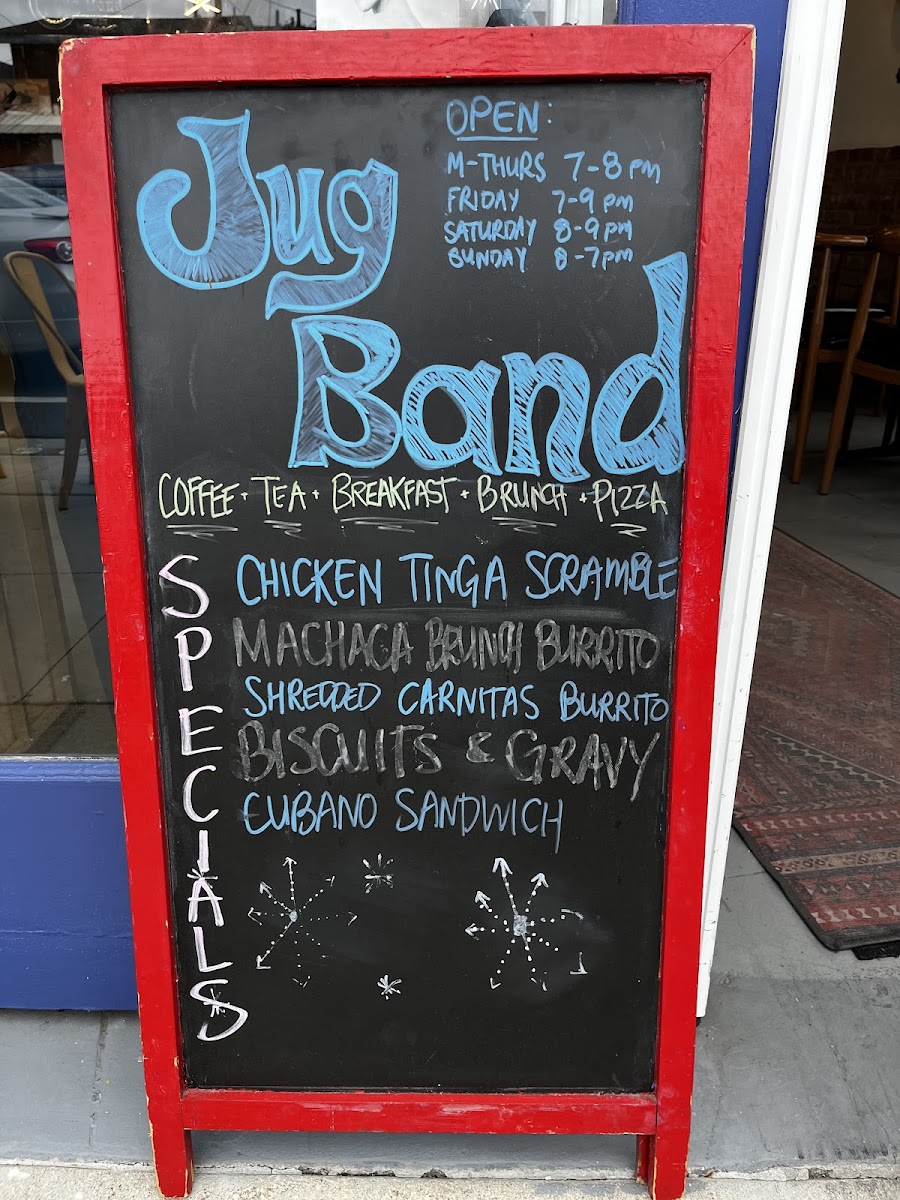 Jug
Band
OPEN:
M-THURS 7-8 PM
FRIDAY 7-9 PM
SATURDAY 8-9 PM
SUNDAY 8-7PM
COFFEE · TEA · BREAKFAST · BRUNCH · PIZZA
SPECIALS
CHICKEN TINGA SCRAMBLE
MACHACA BRUNCH BURRITO
SHREDDED CARNITAS BURRITO
BISCUITS & GRAVY
CUBANO SANDWICH